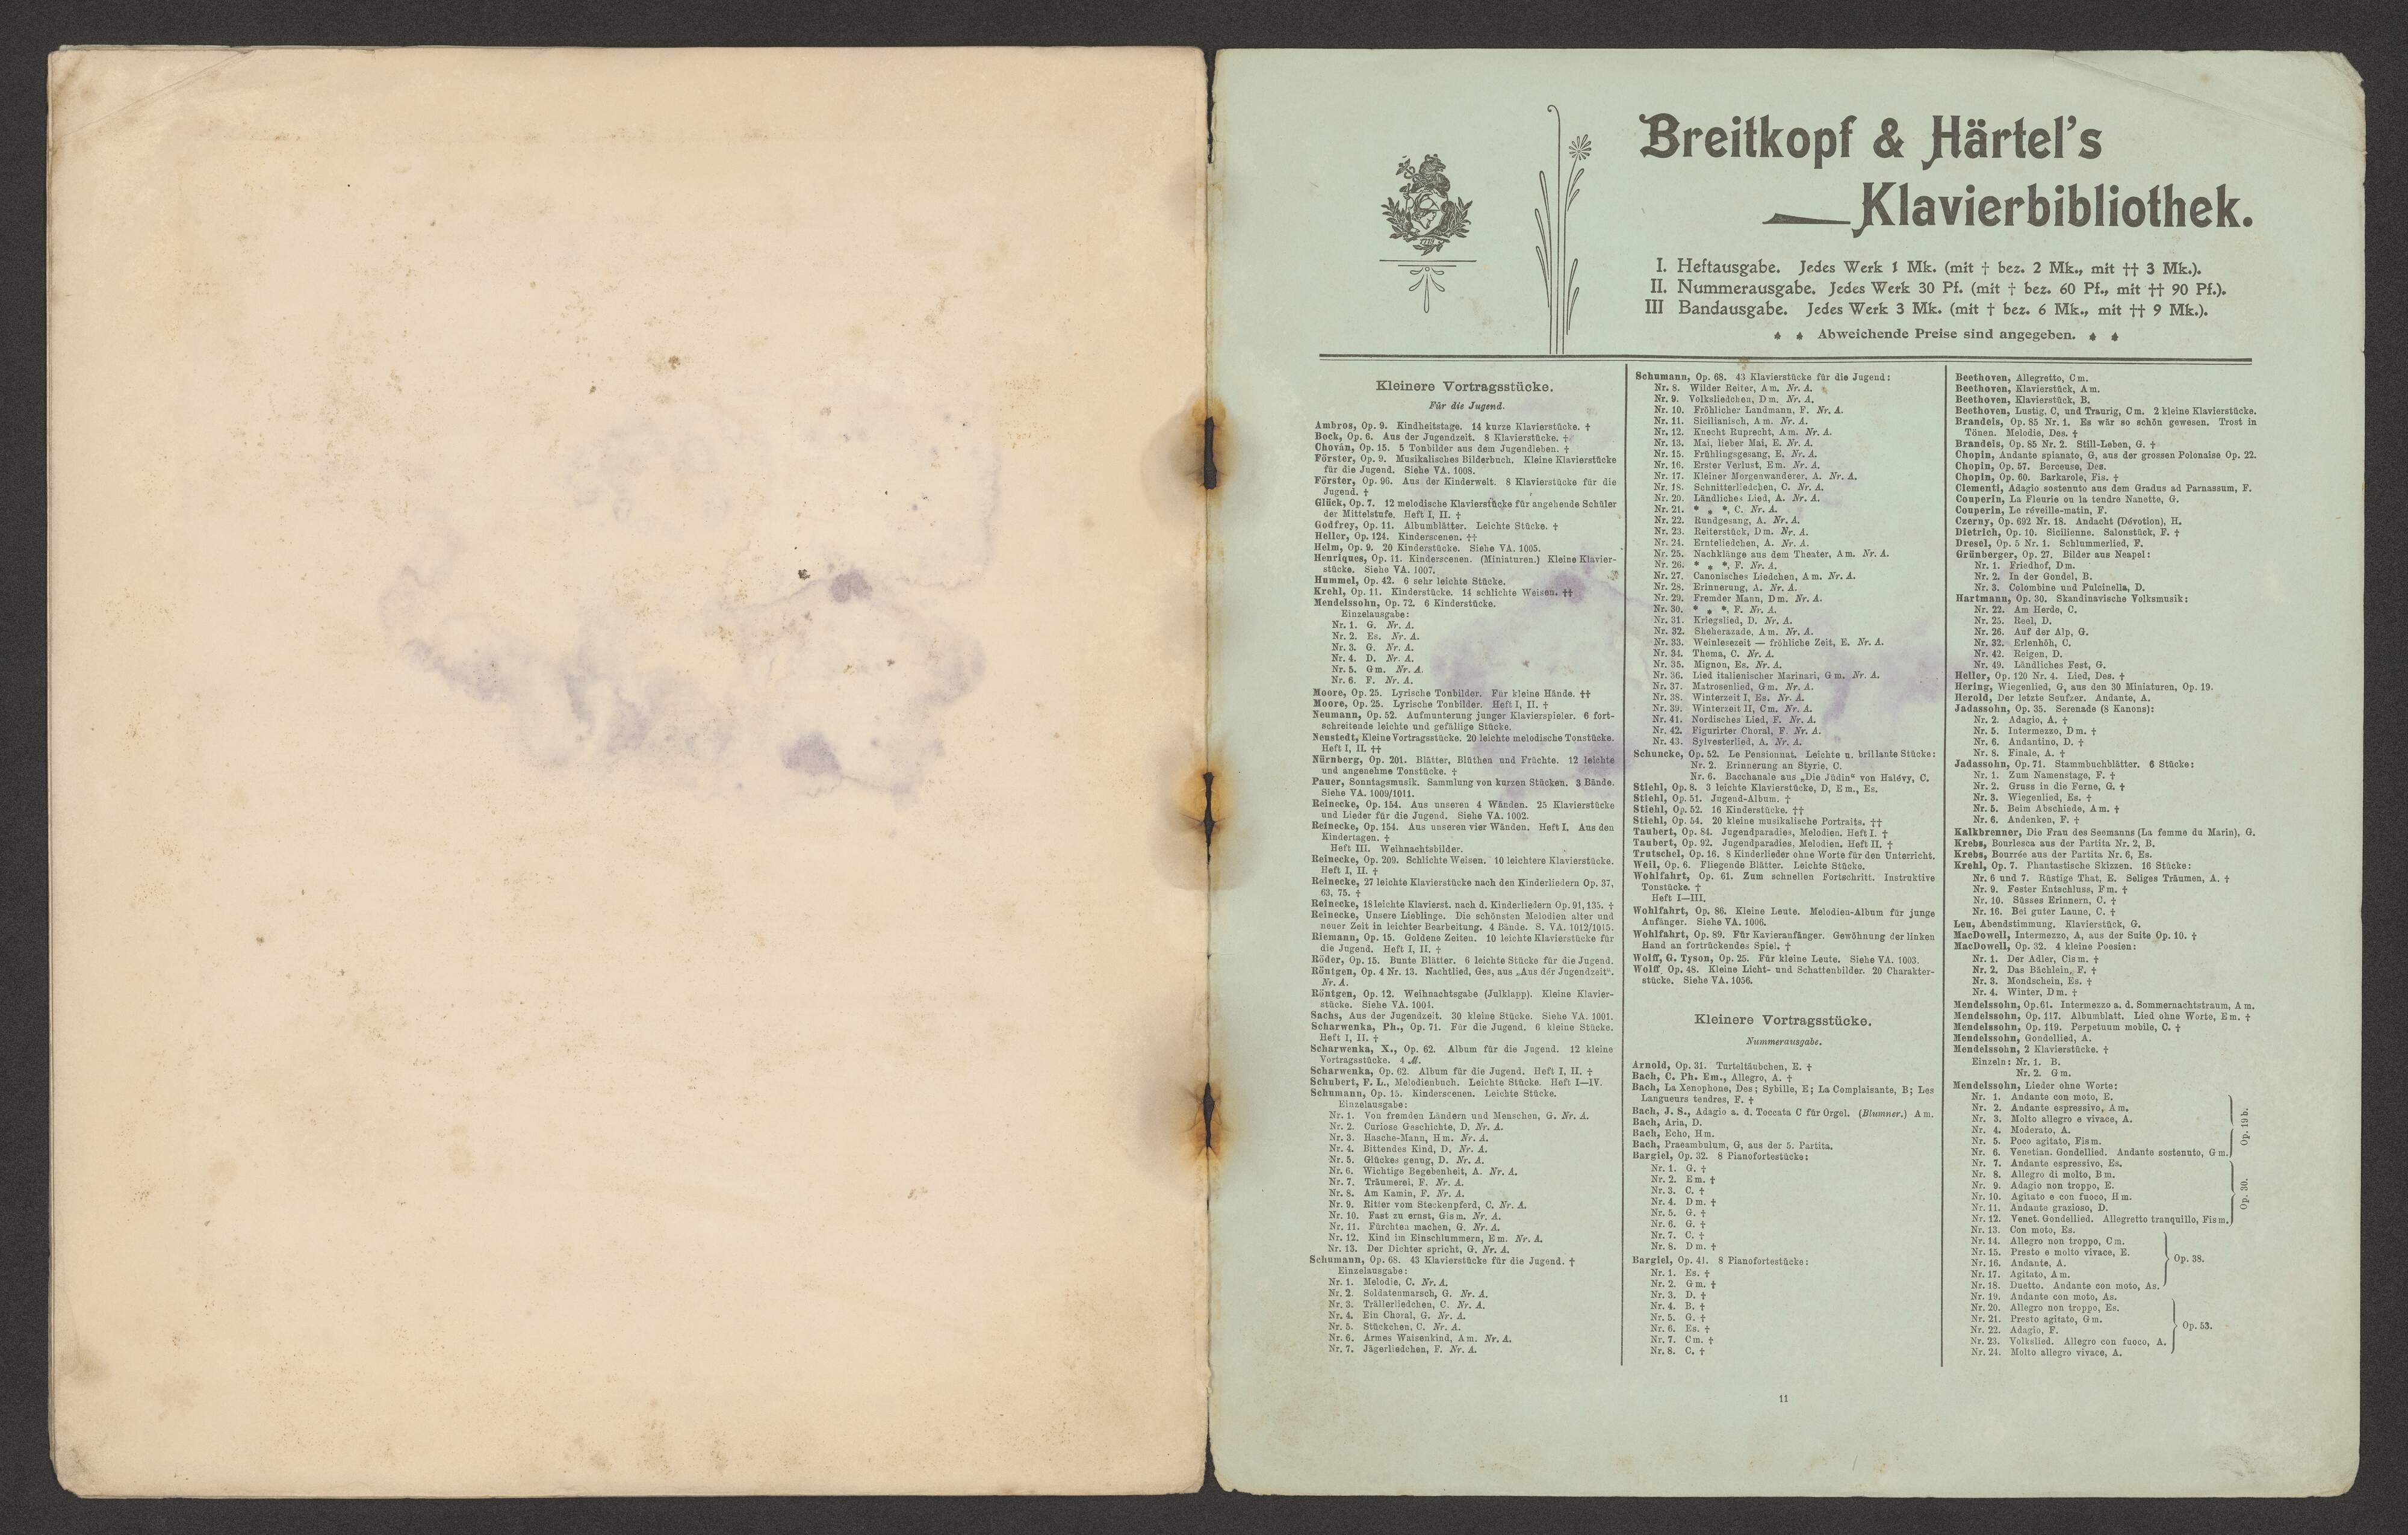 Breitkopf & Härtel's
Klavierbibliothek.
I. Heftausgabe. Jedes Werk 1 Mk. (mit † bez. 2 Mk., mit †† 3 Mk.).
II. Nummerausgabe. Jedes Werk 30 Pf. (mit † bez. 60 Pf., mit †† 90 Pf.).
III Bandausgabe. Jedes Werk 3 Mk. (mit † bez. 6 Mk., mit †† 9 Mk.).
Abweichende Preise sind angegeben.
Kleinere Vortragsstücke.
Für die Jugend.
Ambros, Op. 9. Kindheitstage. 14 kurze Klavierstücke. †
Bock, Op. 6. Aus der Jugendzeit. 8 Klavierstücke. †
Chován, Op. 15. 5 Tonbilder aus dem Jugendleben. †
Förster, Op. 9. Musikalisches Bilderbuch. Kleine Klavierstücke
für die Jugend. Siehe VA. 1008.
Förster, Op. 96. Aus der Kinderwelt. 8 Klavierstücke für die
Jugend. †
Glück, Op. 7. 12 melodische Klavierstücke für angehende Schüler
der Mittelstufe. Heft I, II. †
Godfrey, Op. 11. Albumblätter. Leichte Stücke. †
Heller, Op. 124. Kinderscenen. ††
Helm, Op. 9. 20 Kinderstücke. Siehe VA. 1005.
Henriques, Op. 11. Kinderscenen. (Miniaturen.) Kleine Klavier-
stücke. Siehe VA. 1007.
Hummel, Op. 42. 6 sehr leichte Stücke.
Krehl, Op. 11. Kinderstücke. 14 schlichte Weisen. ††
Mendelssohn, Op. 72. 6 Kinderstücke.
Einzelausgabe:
Nr. 1. G. Nr. A.
Nr. 2. Es. Nr. A.
Nr. 3. G. Nr. A.
Nr. 4. D. Nr. A.
Nr. 5. Gm. Nr. A
Nr. 6. F. Nr. A.
Moore, Op. 25. Lyrische Tonbilder. Für kleine Hände. ††
Moore, Op. 25. Lyrische Tonbilder. Heft I, II. †
Neumann, Op. 52. Aufmunterung junger Klavierspieler. 6 fort-
schreitende leichte und gefällige Stücke.
Neustedt, Kleine Vortragsstücke. 20 leichte melodische Tonstücke.
Heft I, II. ††
Nürnberg, Op. 201. Blätter, Blüthen und Früchte. 12 leichte
und angenehme Tonstücke. †
Pauer, Sonntagsmusik. Sammlung von kurzen Stücken. 3 Bände.
Siehe VA. 1009/1011.
Reinecke, Op. 154. Aus unseren 4 Wänden. 25 Klavierstücke
und Lieder für die Jugend. Siehe VA. 1002.
Reinecke, Op. 154. Aus unseren vier Wänden. Heft I. Aus den
Kindertagen. †
Heft III. Weihnachtsbilder.
Reinecke, Op. 209. Schlichte Weisen. 10 leichtere Klavierstücke.
Heft I, II. †
Reinecke, 27 leichte Klavierstücke nach den Kinderliedern Op. 37,
63, 75. †
Reinecke, 18 leichte Klavierst. nach d. Kinderliedern Op. 91, 135. †
Reinecke, Unsere Lieblinge. Die schönsten Melodien alter und
neuer Zeit in leichter Bearbeitung. 4 Bände. S. VA. 1012/1015.
Riemann, Op. 15. Goldene Zeiten. 10 leichte Klavierstücke für
die Jugend. Heft I, II. †
Röder, Op. 15. Bunte Blätter. 6 leichte Stücke für die Jugend.
Röntgen, Op. 4 Nr. 13. Nachtlied, Ges, aus „Aus der Jugendzeit".
Nr. A.
Röntgen, Op. 12. Weihnachtsgabe (Julklapp). Kleine Klavier-
stücke. Siehe VA. 1004.
Sachs, Aus der Jugendzeit. 30 kleine Stücke. Siehe VA. 1001.
Scharwenka, Ph., Op. 71. Für die Jugend. 6 kleine Stücke.
Heft I, II. †
Scharwenka, X., Op. 62. Album für die Jugend. 12 kleine
Vortragsstücke. 4 M.
Scharwenka, Op. 62. Album für die Jugend. Heft I, II. †
Schubert, F. L., Melodienbuch. Leichte Stücke. Heft I—IV.
Schumann, Op. 15. Kinderscenen. Leichte Stücke.
Einzelausgabe:
Nr. 1. Von fremden Ländern und Menschen, G. Nr. A.
Nr. 2. Curiose Geschichte, D. Nr. A.
Nr. 3. Hasche-Mann, Hm. Nr. A.
Nr. 4. Bittendes Kind, D. Nr. A.
Nr. 5. Glückes genug, D. Nr. A.
Nr. 6. Wichtige Begebenheit, A. Nr. A.
Nr. 7. Träumerei, F. Nr. A.
Nr. 8. Am Kamin, F. Nr. A.
Nr. 9. Ritter vom Steckenpferd, C. Nr. A.
Nr. 10. Fast zu ernst, Gism. Nr. A.
Nr. 11. Fürchten machen, G. Nr. A.
Nr. 12. Kind im Einschlummern, Em. Nr. A.
Nr. 13. Der Dichter spricht, G. Nr. A.
Schumann, Op. 68. 43 Klavierstücke für die Jugend. †
Einzelausgabe:
Nr. 1. Melodie, C. Nr. A.
Nr. 2. Soldatenmarsch, G. Nr. A.
Nr. 3. Trällerliedchen, C. Nr. A.
Nr. 4. Ein Choral, G. Nr. A.
Nr. 5. Stückchen, C. Nr. A.
Nr. 6. Armes Waisenkind, Am. Nr. A.
Nr. 7. Jägerliedchen, F. Nr. A.
Schumann, Op. 68. 43 Klavierstücke für die Jugend:
Nr. 8. Wilder Reiter, Am. Nr. A.
Nr. 9. Volksliedchen, Dm. Nr. A.
Nr. 10. Fröhlicher Landmann, F. Nr. A.
Nr. 11. Sicilianisch, Am. Nr. A.
Nr. 12. Knecht Ruprecht, Am. Nr. A.
Nr. 13. Mai, lieber Mai, E. Nr. A.
Nr. 15. Frühlingsgesang, E. Nr. A.
Nr. 16. Erster Verlust, Em. Nr. A.
Nr. 17. Kleiner Morgenwanderer, A. Nr. A.
Nr. 18. Schnitterliedchen, C. Nr. A.
Nr. 20. Ländliches Lied, A. Nr. A.
Nr. 21. * * *, C. Nr. A.
Nr. 22. Rundgesang, A. Nr. A.
Nr. 23. Reiterstück, Dm. Nr. A.
Nr. 24. Ernteliedchen, A. Nr. A.
Nr. 25. Nachklänge aus dem Theater, Am. Nr. A.
Nr. 26. * * *, F. Nr. A.
Nr. 27. Canonisches Liedchen, Am. Nr. A.
Nr. 28. Erinnerung, A. Nr. A.
Nr. 29. Fremder Mann, Dm. Nr. A.
Nr. 30. * * *, F. Nr. A.
Nr. 31. Kriegslied, D. Nr. A.
Nr. 32. Sheherazade, Am. Nr. A.
Nr. 33. Weinlesezeit — fröhliche Zeit, E. Nr. A.
Nr. 34. Thema, C. Nr. A.
Nr. 35. Mignon, Es. Nr. A.
Nr. 36. Lied italienischer Marinari, Gm. Nr. A.
Nr. 37. Matrosenlied, Gm. Nr. A.
Nr. 38. Winterzeit I, Es. Nr. A.
Nr. 39. Winterzeit II, Cm. Nr. A.
Nr. 41. Nordisches Lied, F. Nr. A.
Nr. 42. Figurirter Choral, F. Nr. A.
Nr. 43. Sylvesterlied, A. Nr. A.
Schuncke, Op. 52. Le Pensionnat. Leichte u. brillante Stücke:
Nr. 2. Erinnerung an Styrie, C.
Nr. 6. Bacchanale aus „Die Jüdin" von Halévy, C.
Stiehl, Op. 8. 3 leichte Klavierstücke, D, Em., Es.
Stiehl, Op. 51. Jugend-Album. †
Stiehl, Op. 52. 16 Kinderstücke. ††
Stiehl, Op. 54. 20 kleine musikalische Portraits. ††
Taubert, Op. 84. Jugendparadies, Melodien. Heft I. †
Taubert, Op. 92. Jugendparadies, Melodien. Heft II. †
Trutschel, Op. 16. 8 Kinderlieder ohne Worte für den Unterricht.
Weil, Op. 6. Fliegende Blätter. Leichte Stücke.
Wohlfahrt, Op. 61. Zum schnellen Fortschritt. Instruktive
Tonstücke. †
Heft I—III.
Wohlfahrt, Op. 86. Kleine Leute. Melodien-Album für junge
Anfänger. Siehe VA. 1006.
Wohlfahrt, Op. 89. Für Kavieranfänger. Gewöhnung der linken
Hand an fortrückendes Spiel. †
Wolff, G. Tyson, Op. 25. Für kleine Leute. Siehe VA. 1003.
Wolff, Op. 48. Kleine Licht- und Schattenbilder. 20 Charakter-
stücke. Siehe VA. 1056.
Kleinere Vortragsstücke.
Nummerausgabe.
Arnold, Op. 31. Turteltäubchen, E. †
Bach, C. Ph. Em., Allegro, A. †
Bach, La Xenophone, Des; Sybille, E; La Complaisante, B; Les
Langueurs tendres, F. †
Bach, J. S., Adagio a. d. Toccata C für Orgel. (Blumner.) Am.
Bach, Aria, D.
Bach, Echo, Hm.
Bach, Praeambulum, G, aus der 5. Partita.
Bargiel, Op. 32. 8 Pianofortestücke:
Nr. 1. G. †
Nr. 2. Em. †
Nr. 3. C. †
Nr. 4. Dm. †
Nr. 5. G. †
Nr. 6. G. †
Nr. 7. C. †
Nr. 8. Dm. †
Bargiel, Op. 41. 8 Pianofortestücke:
Nr. 1. Es. †
Nr. 2. Gm. †
Nr. 3. D. †
Nr. 4. B. †
Nr. 5. G. †
Nr. 6. Es. †
Nr. 7. Cm. †
Nr. 8. C. †
Beethoven, Allegretto, Cm.
Beethoven, Klavierstück, Am.
Beethoven, Klavierstück, B.
Beethoven, Lustig, C, und Traurig, Cm. 2 kleine Klavierstücke.
Brandeis, Op. 85 Nr. 1. Es wär so schön gewesen. Trost in
Tönen. Melodie, Des. †
Brandeis, Op. 85 Nr. 2. Still-Leben, G. †
Chopin, Andante spianato, G, aus der grossen Polonaise Op. 22.
Chopin, Op. 57. Berceuse, Des.
Chopin, Op. 60. Barkarole, Fis. †
Clementi, Adagio sostenuto aus dem Gradus ad Parnassum, F.
Couperin, La Fleurie ou la tendre Nanette, G.
Couperin, Le réveille-matin, F.
Czerny, Op. 692 Nr. 18. Andacht (Dévotion), H.
Dietrich, Op. 10. Sicilienne. Salonstück, F. †
Dresel, Op. 5 Nr. 1. Schlummerlied, F.
Grünberger, Op. 27. Bilder aus Neapel:
Nr. 1. Friedhof, Dm.
Nr. 2. In der Gondel, B.
Nr. 3. Colombine und Pulcinella, D.
Hartmann, Op. 30. Skandinavische Volksmusik:
Nr. 22. Am Herde, C.
Nr. 25. Reel, D.
Nr. 26. Auf der Alp, G.
Nr. 32. Erlenhöh, C.
Nr. 42. Reigen, D.
Nr. 49. Ländliches Fest, G.
Heller, Op. 120 Nr. 4. Lied, Des. †
Hering, Wiegenlied, G, aus den 30 Miniaturen, Op. 19.
Herold, Der letzte Seufzer. Andante, A.
Jadassohn, Op. 35. Serenade (8 Kanons):
Nr. 2. Adagio, A. †
Nr. 5. Intermezzo, Dm. †
Nr. 6. Andantino, D. †
Nr. 8. Finale, A. †
Jadassohn, Op. 71. Stammbuchblätter. 6 Stücke:
Nr. 1. Zum Namenstage, F. †
Nr. 2. Gruss in die Ferne, G. †
Nr. 3. Wiegenlied, Es. †
Nr. 5. Beim Abschiede, Am. †
Nr. 6. Andenken, F. †
Kalkbrenner, Die Frau des Seemanns (La femme du Marin), G.
Krebs, Bourlesca aus der Partita Nr. 2, B.
Krebs, Bourrée aus der Partita Nr. 6, Es.
Krehl, Op. 7. Phantastische Skizzen. 16 Stücke:
Nr. 6 und 7. Rüstige That, E. Seliges Träumen, A. †
Nr. 9. Fester Entschluss, Fm. †
Nr. 10. Süsses Erinnern, C. †
Nr. 16. Bei guter Laune, C. †
Leu, Abendstimmung. Klavierstück, G.
MacDowell, Intermezzo, A, aus der Suite Op. 10. †
MacDowell, Op. 32. 4 kleine Poesien:
Nr. 1. Der Adler, Cism. †
Nr. 2. Das Bächlein, F. †
Nr. 3. Mondschein, Es. †
Nr. 4. Winter, Dm. †
Mendelssohn, Op. 61. Intermezzo a. d. Sommernachtstraum, Am.
Mendelssohn, Op. 117. Albumblatt. Lied ohne Worte, Em. †
Mendelssohn, Op. 119. Perpetuum mobile, C. †
Mendelssohn, Gondellied, A.
Mendelssohn, 2 Klavierstücke. †
Einzeln: Nr. 1. B.
Nr. 2. Gm.
Mendelssohn, Lieder ohne Worte:
Nr. 1. Andante con moto, E.
Nr. 2. Andante espressivo, Am.
Nr. 3. Molto allegro e vivace, A.
Nr. 4. Moderato, A.
Nr. 5. Poco agitato, Fism.
Nr. 6. Venetian. Gondellied. Andante sostenuto, Gm.
Op. 19 b.
Nr. 7. Andante espressivo, Es.
Nr. 8. Allegro di molto, Bm.
Nr. 9. Adagio non troppo, E.
Nr. 10. Agitato e con fuoco, Hm.
Nr. 11. Andante grazioso, D.
Nr. 12. Venet. Gondellied. Allegretto tranquillo, Fism.
Op. 30.
Nr. 13. Con moto, Es.
Nr. 14. Allegro non troppo, Cm.
Nr. 15. Presto e molto vivace, E.
Nr. 16. Andante, A.
Nr. 17. Agitato, Am.
Nr. 18. Duetto. Andante con moto, As.
Op. 38.
Nr. 19. Andante con moto, As.
Nr. 20. Allegro non troppo, Es.
Nr. 21. Presto agitato, Gm.
Nr. 22. Adagio, F.
Nr. 23. Volkslied. Allegro con fuoco, A.
Nr. 24. Molto allegro vivace, A.
Op. 53.
11